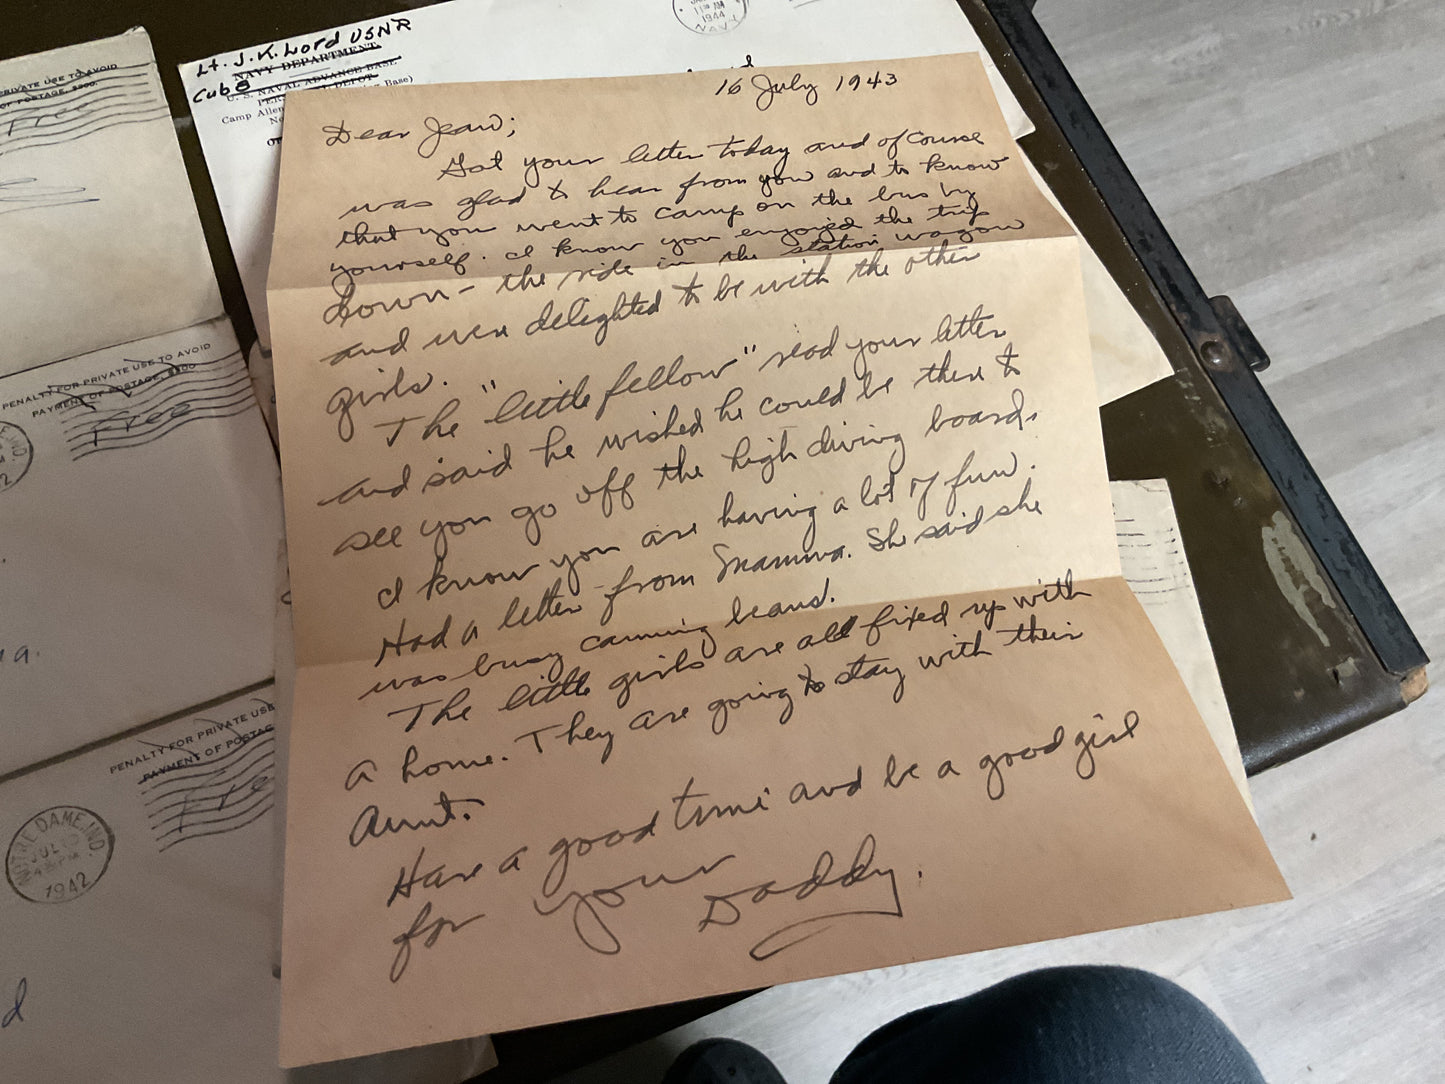 PRIVATE USE TO AVOID
OF POSTAGE, $300.
Free
Lt. J. K. Lord USNR
NAVY DEPARTMENT
Cub 8
U. S. NAVAL ADVANCE BASE
DEPOT
Camp Allen
Base)
11 AM
1944
NAVY
16 July 1943
Dear Jean;
Got your letter today and of course
was glad to hear from you and to know
that you went to camp on the bus by
yourself. I know you enjoyed the trip
down – the ride in the station wagon
and were delighted to be with the other
girls.
The "little fellow" read your letter
and said he wished he could be there to
see you go off the high diving boards
I know you are having a lot of fun.
Had a letter from Mamma. She said she
was busy canning beans.
The little girls are all fixed up with
a home. They are going to stay with their
Aunt.
Have a good time and be a good girl
for your Daddy.
PENALTY FOR PRIVATE USE TO AVOID
PAYMENT OF POSTAGE, $300
Free
IND.
a.
PENALTY FOR PRIVATE USE
PAYMENT OF POSTAG
Free
NOTRE DAME, IND.
JUL
PM
1942
d